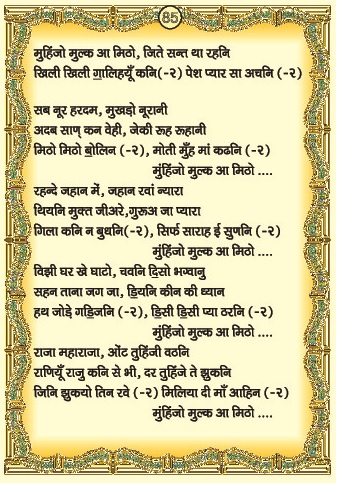 85
मुहिंजो मुल्क आ मिठो, जिते सन्त था रहनि
खिली खिली गा॒लिहयूँ कनि(-२) पेश प्यार सा अचनि (-२)
सब नूर हरदम, मुखड़ो नूरानी
अदब साण् कन वेही, जेकी रूह रूहानी
मिठो मिठो बो॒लिन (-२), मोती मुँह मां कढनि (-२)
मुंहिंजो मुल्क आ मिठो ....
रहन्दे जहान में, जहान रवां न्यारा
थियनि मुक्त जीअरे,गुरूअ जा प्यारा
गिला कनि न बुधनि(-२), सिर्फ साराह ई सुणनि (-२)
मुंहिंजो मुल्क आ मिठो ....
विझी घर खे घाटो, चवनि दि॒सो भग्वानु
सहन ताना जग जा, डि॒यनि कीन की ध्यान
हथ जोडे॒ गडि॒जनि (-२), डि॒सी डि॒सी प्या ठरनि (-२)
मुंहिंजो मुल्क आ मिठो ....
राजा महाराजा, ओंट तुहिंजी वठनि
राणियूँ राजु कनि से भी, दर तुहिंजे ते झुकनि
जिनि झुकयो तिन रवे (-२) मिलिया दी माँ आहिन (-२)
मुंहिंजो मुल्क आ मिठो ....